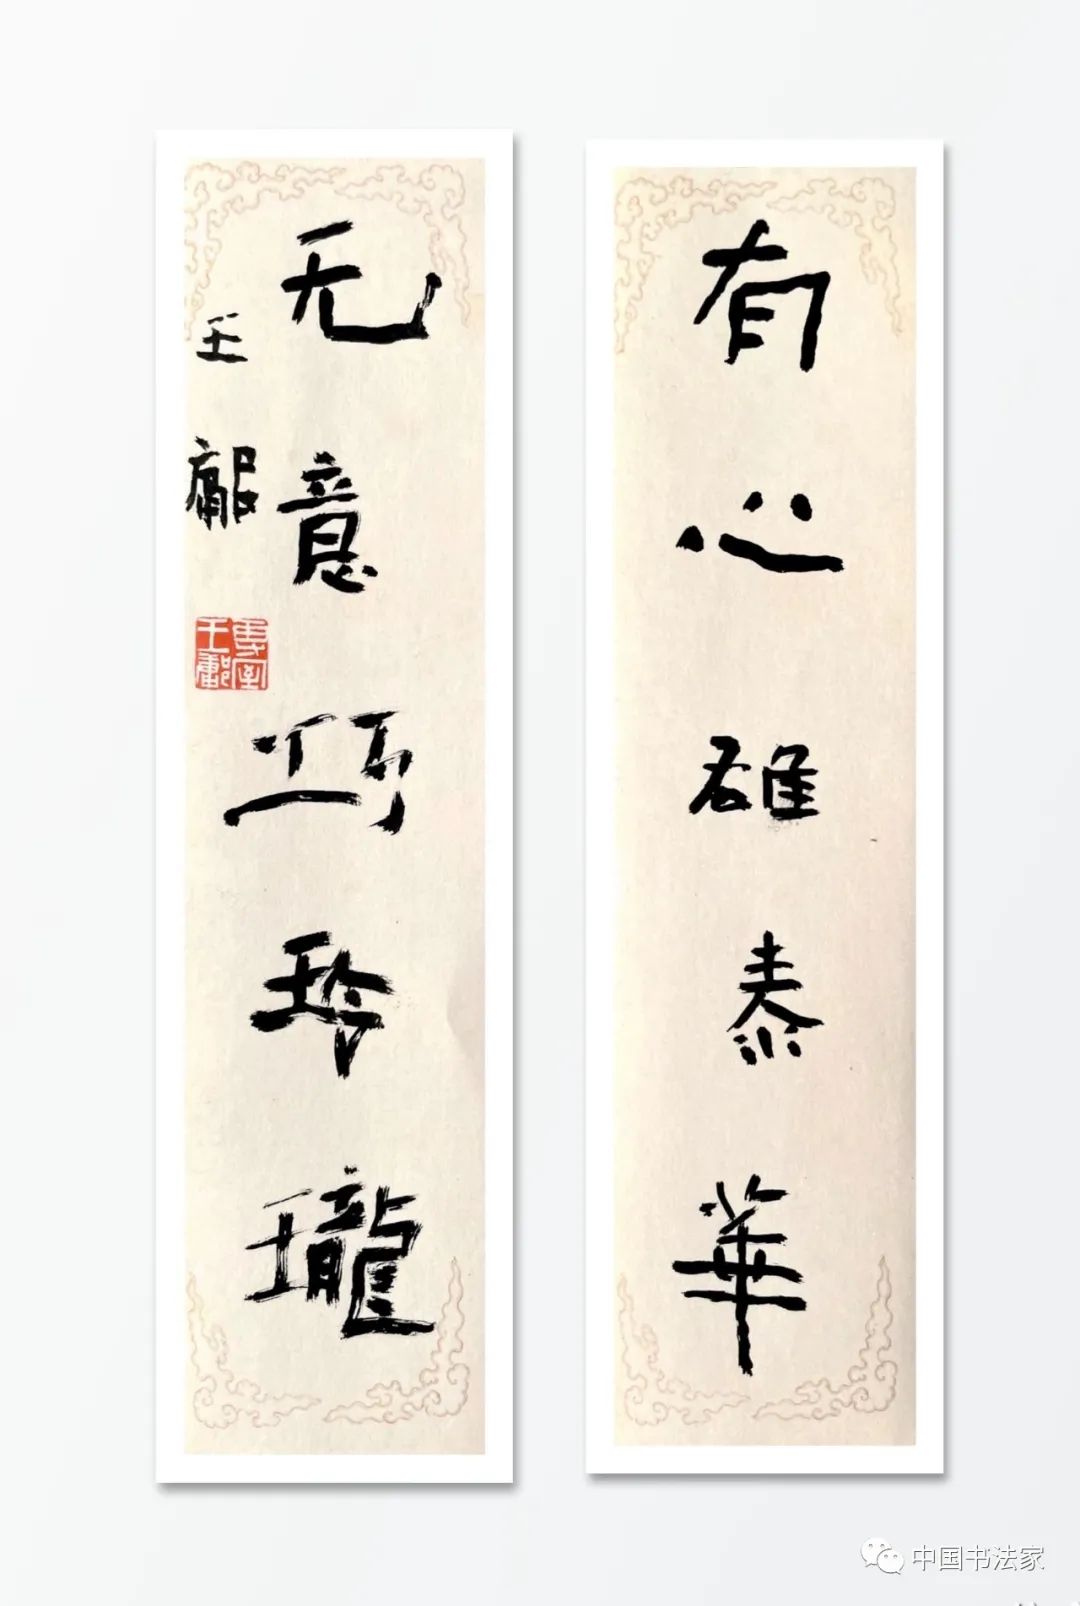 有心雄泰華
无意巧玲瓏
王鄘
中国书法家